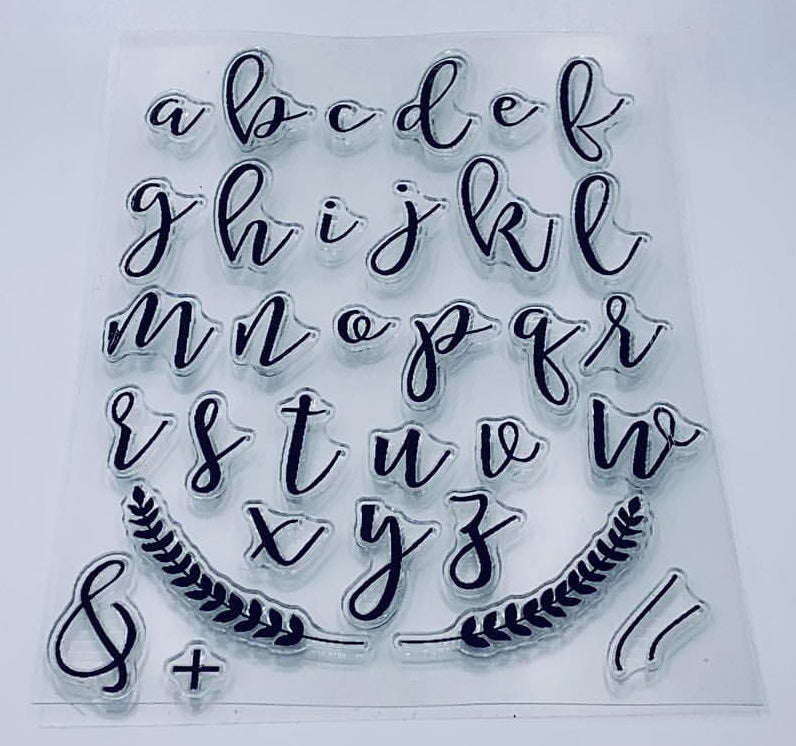 a b c d e f
g h i j k l
m n o p q r
r s t u v w
x y z
& +